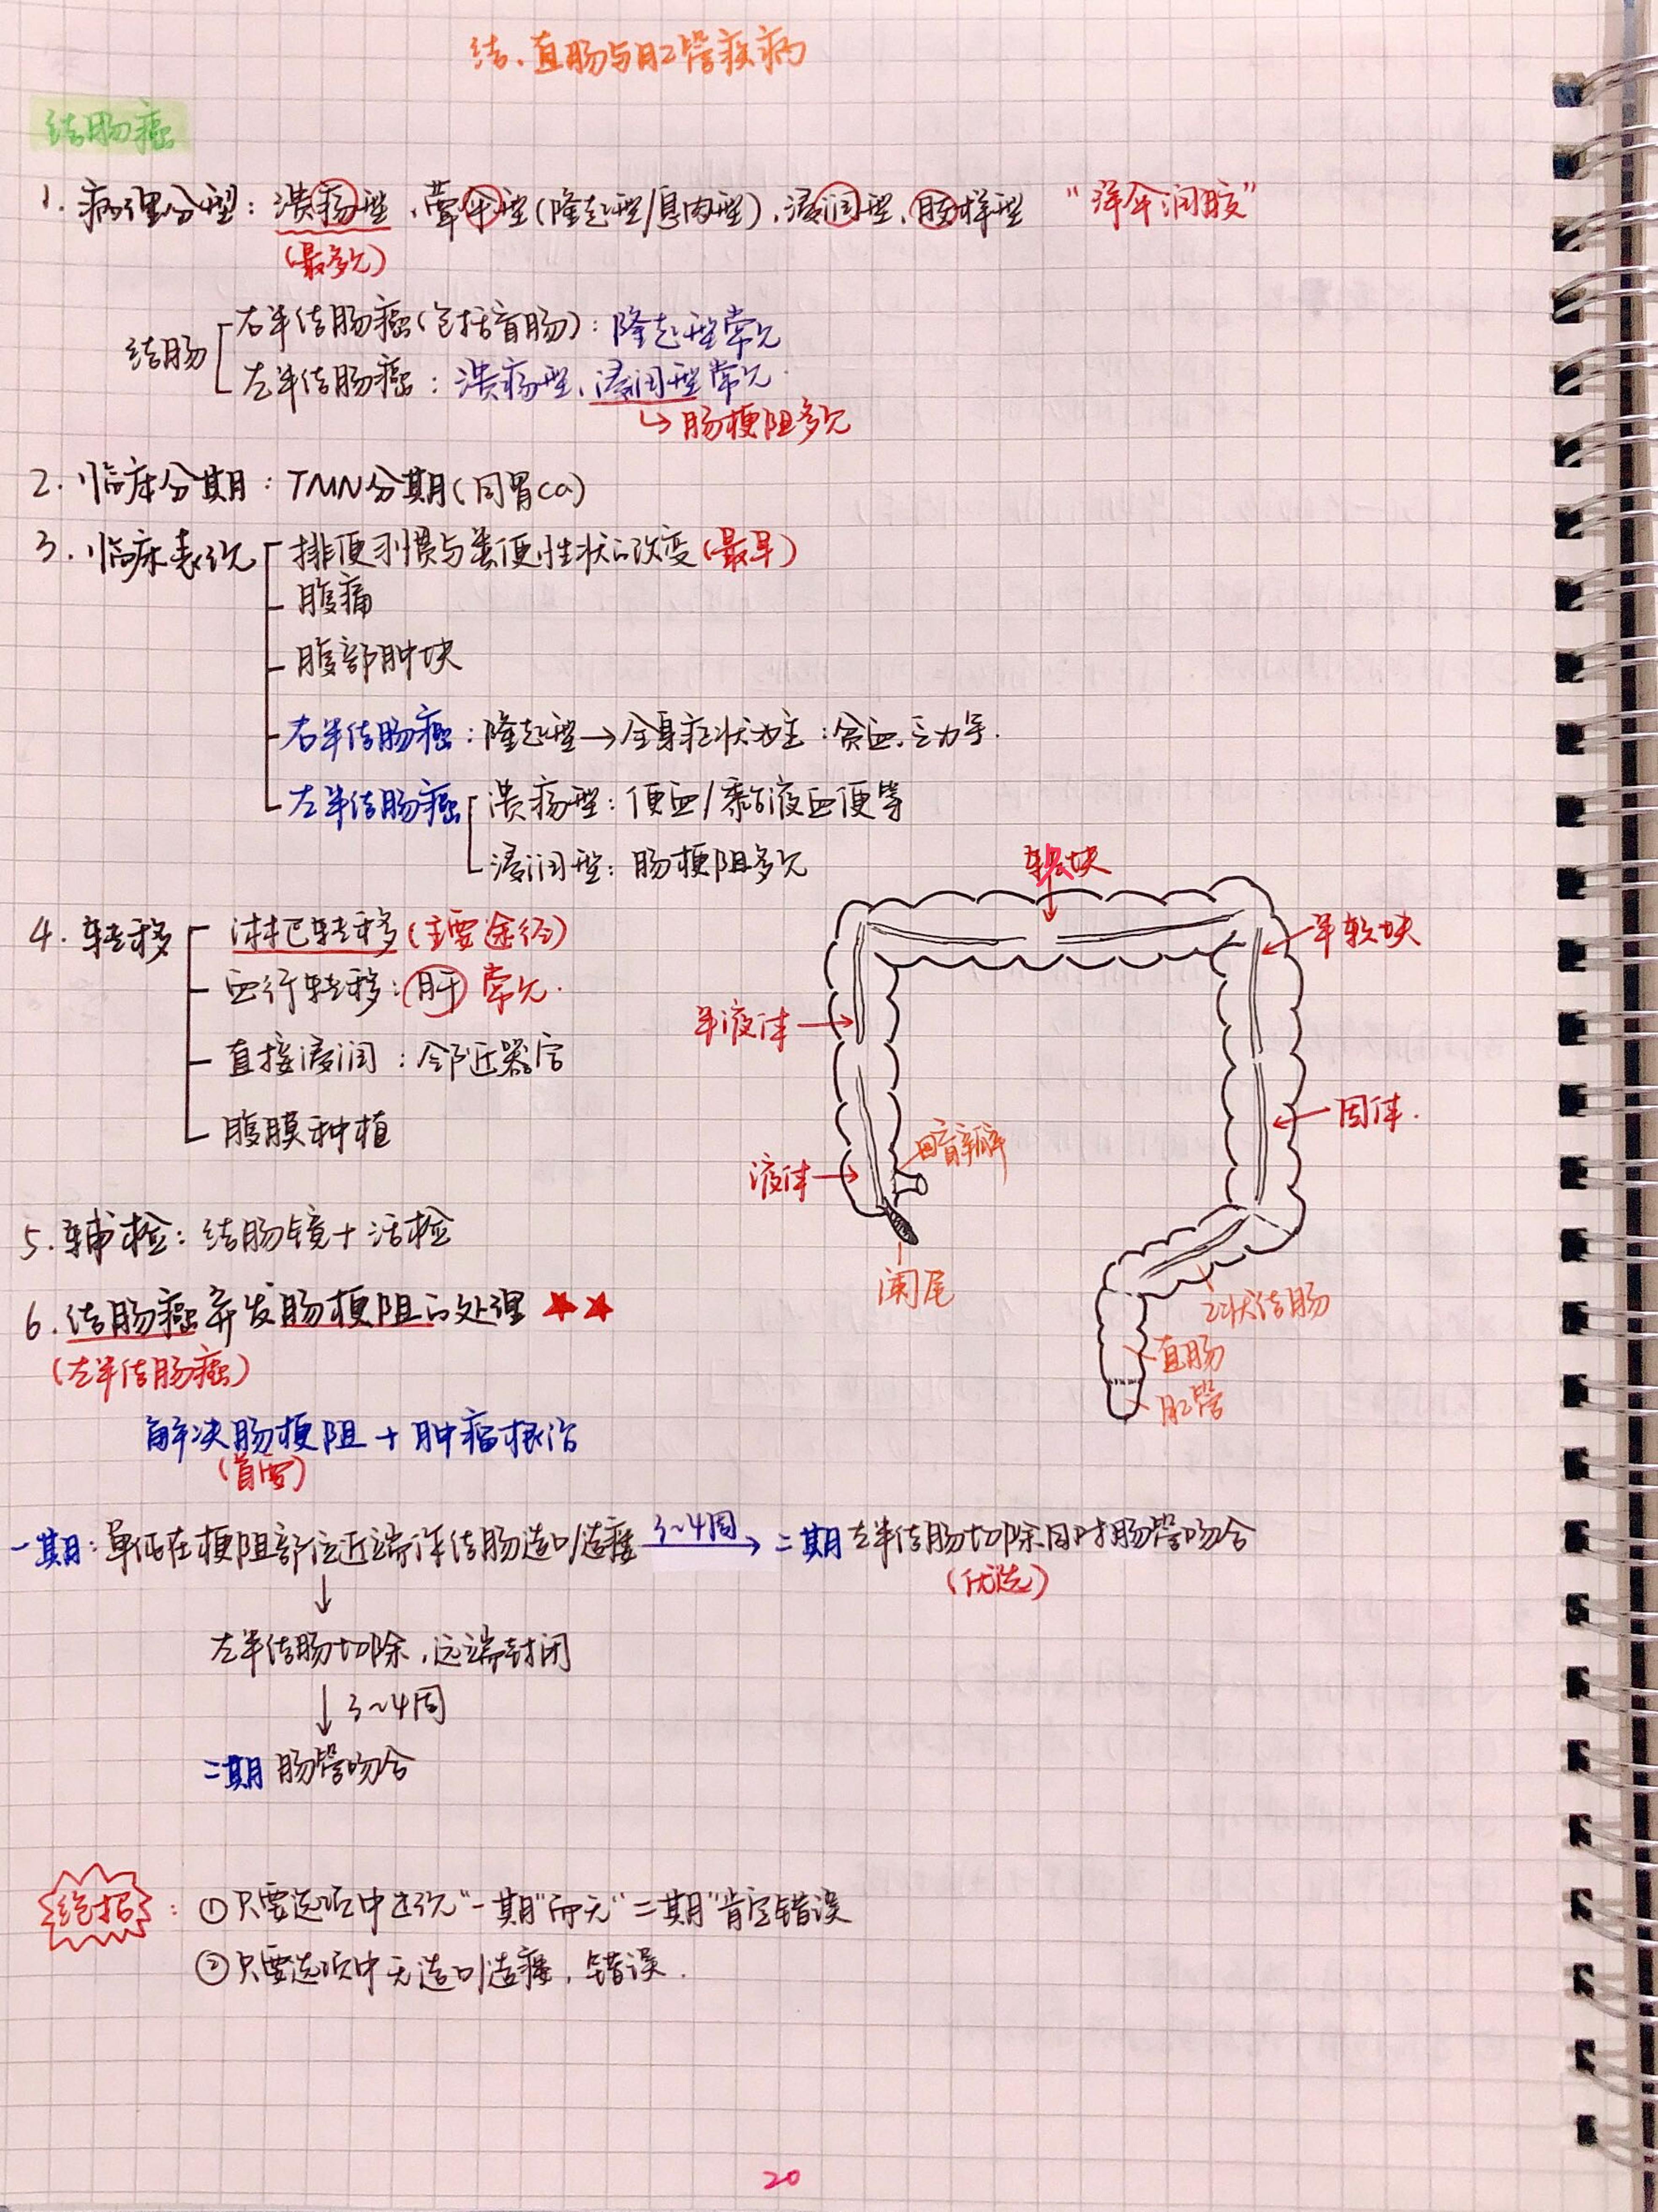 结、直肠与肛管疾病
结肠癌
1. 病理分型：溃疡型、蕈伞型(隆起型/息肉型)、浸润型、胶样型 “洋伞润胶”
(最多见)
结肠
右半结肠癌(包括盲肠)：隆起型常见
左半结肠癌：溃疡型、浸润型常见.
↳ 肠梗阻多见
2. 临床分期：TMN分期(同胃ca)
3. 临床表现
排便习惯与粪便性状的改变(最早)
腹痛
腹部肿块
右半结肠癌：隆起型→全身症状为主：贫血、乏力等.
左半结肠癌
溃疡型：便血/黏液血便等
浸润型：肠梗阻多见
4. 转移
淋巴转移(主要途径)
血行转移：肝 常见.
直接浸润：邻近器官
腹膜种植
软块
半软块
半液体
固体.
液体
回盲瓣
阑尾
乙状结肠
直肠
肛管
5. 辅检：结肠镜+活检
6. 结肠癌并发肠梗阻的处理 ★★
(左半结肠癌)
解决肠梗阻+肿瘤根治
(首要)
一期：单纯在梗阻部位近端作结肠造口/造瘘 3~4周→ 二期 左半结肠切除同时肠管吻合
(优选)
↓
左半结肠切除，远端封闭
↓3~4周
二期 肠管吻合
绝招：①只要选项中出现“一期”而无“二期”肯定错误
②只要选项中无造口/造瘘，错误.
20